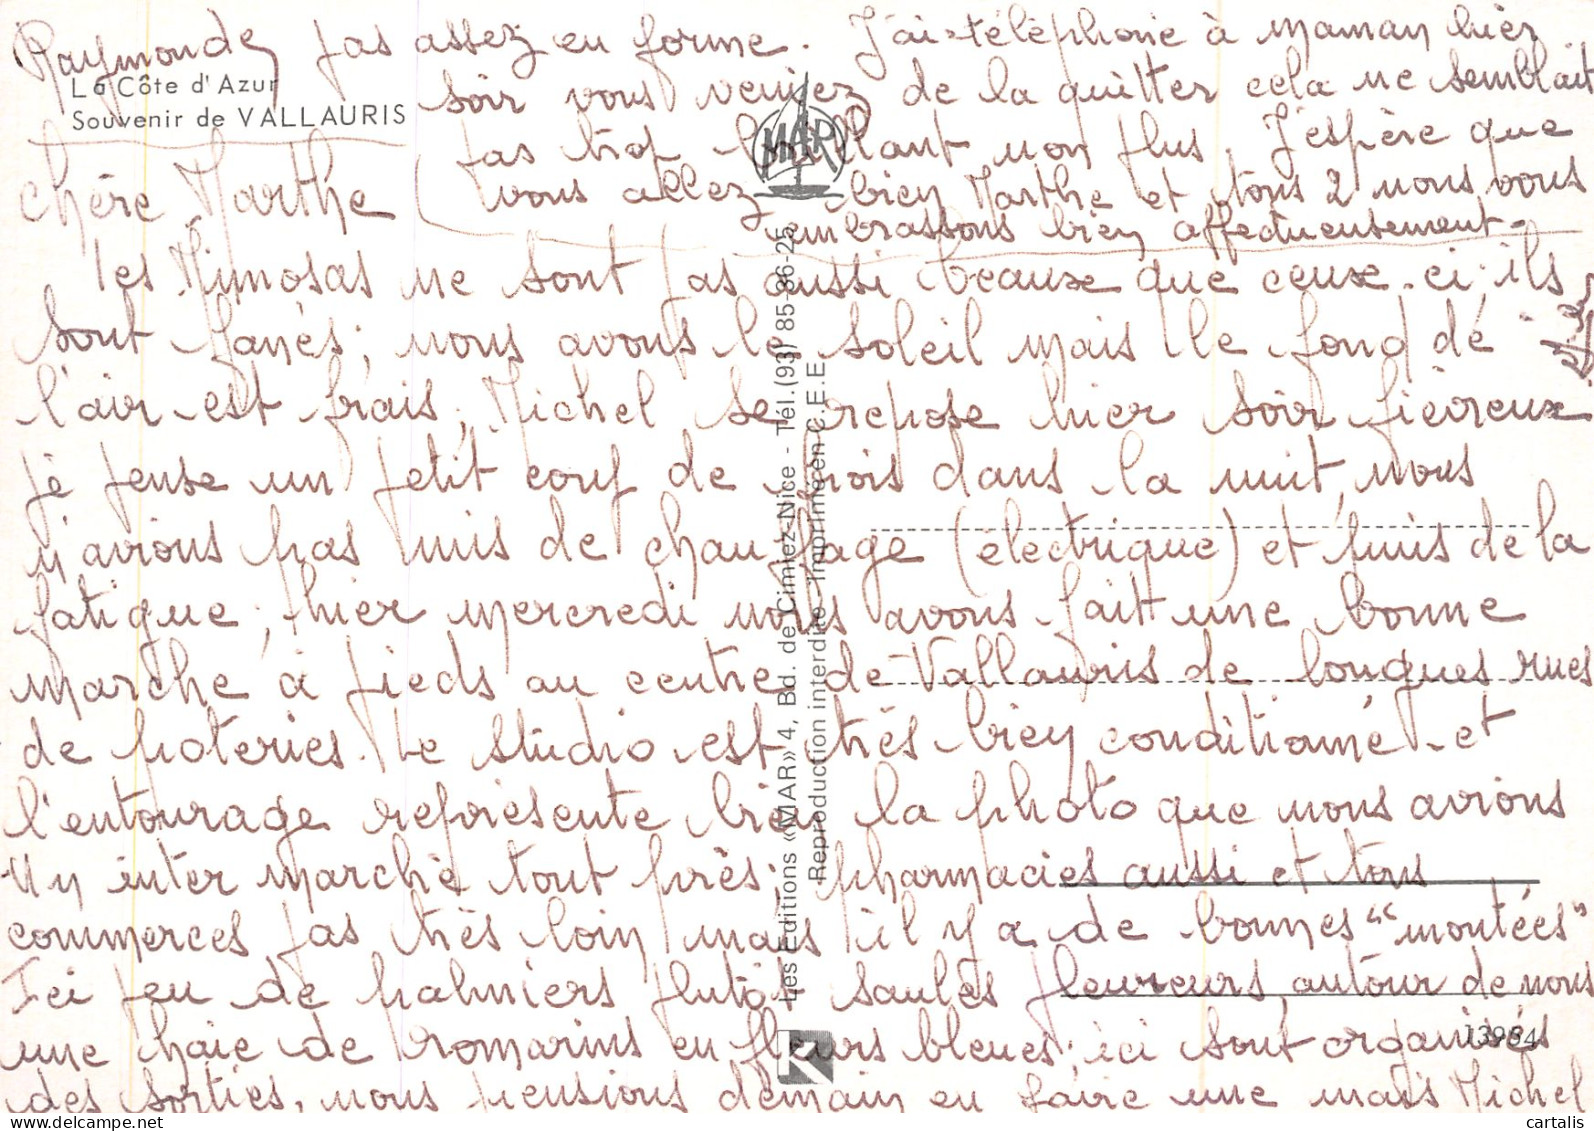 Raymonde pas assez en forme. J'ai téléphoné à maman hier
soir vous veniez de la quitter cela ne semblait
pas trop brillant non plus. J'espère que
vous allez bien Marthe et tous 2 nous vous
embrassons bien affectueusement.
La Côte d'Azur
Souvenir de VALLAURIS
MAR
Chère Marthe
les Mimosas ne sont pas aussi beaux que ceux-ci; ils
sont fanés; nous avons le soleil mais le fond de
l'air est frais; Michel se repose hier soir fiévreux
je pense un petit coup de froid dans la nuit, nous
n'avions pas mis de chauffage (électrique) et puis de la
fatigue; hier mercredi nous avons fait une bonne
marche à pieds au centre de Vallauris de longues rues
de poteries. Le studio est très bien conditionné et
l'entourage représente bien la photo que nous avions
Un inter marché tout près; pharmacies aussi et tous
commerces pas très loin mais il y a de bonnes "montées"
Ici peu de palmiers plutôt saules pleureurs, autour de nous
une haie de romarins en fleurs bleues; ici sont organisés
des sorties, nous pensions demain en faire une mais Michel
Les Editions «MAR» 4, Bd. de Cimiez-Nice - Tél. (93) 85-86-25
Reproduction interdite - Imprimé en C.E.E
K
13964
cartalis cartes